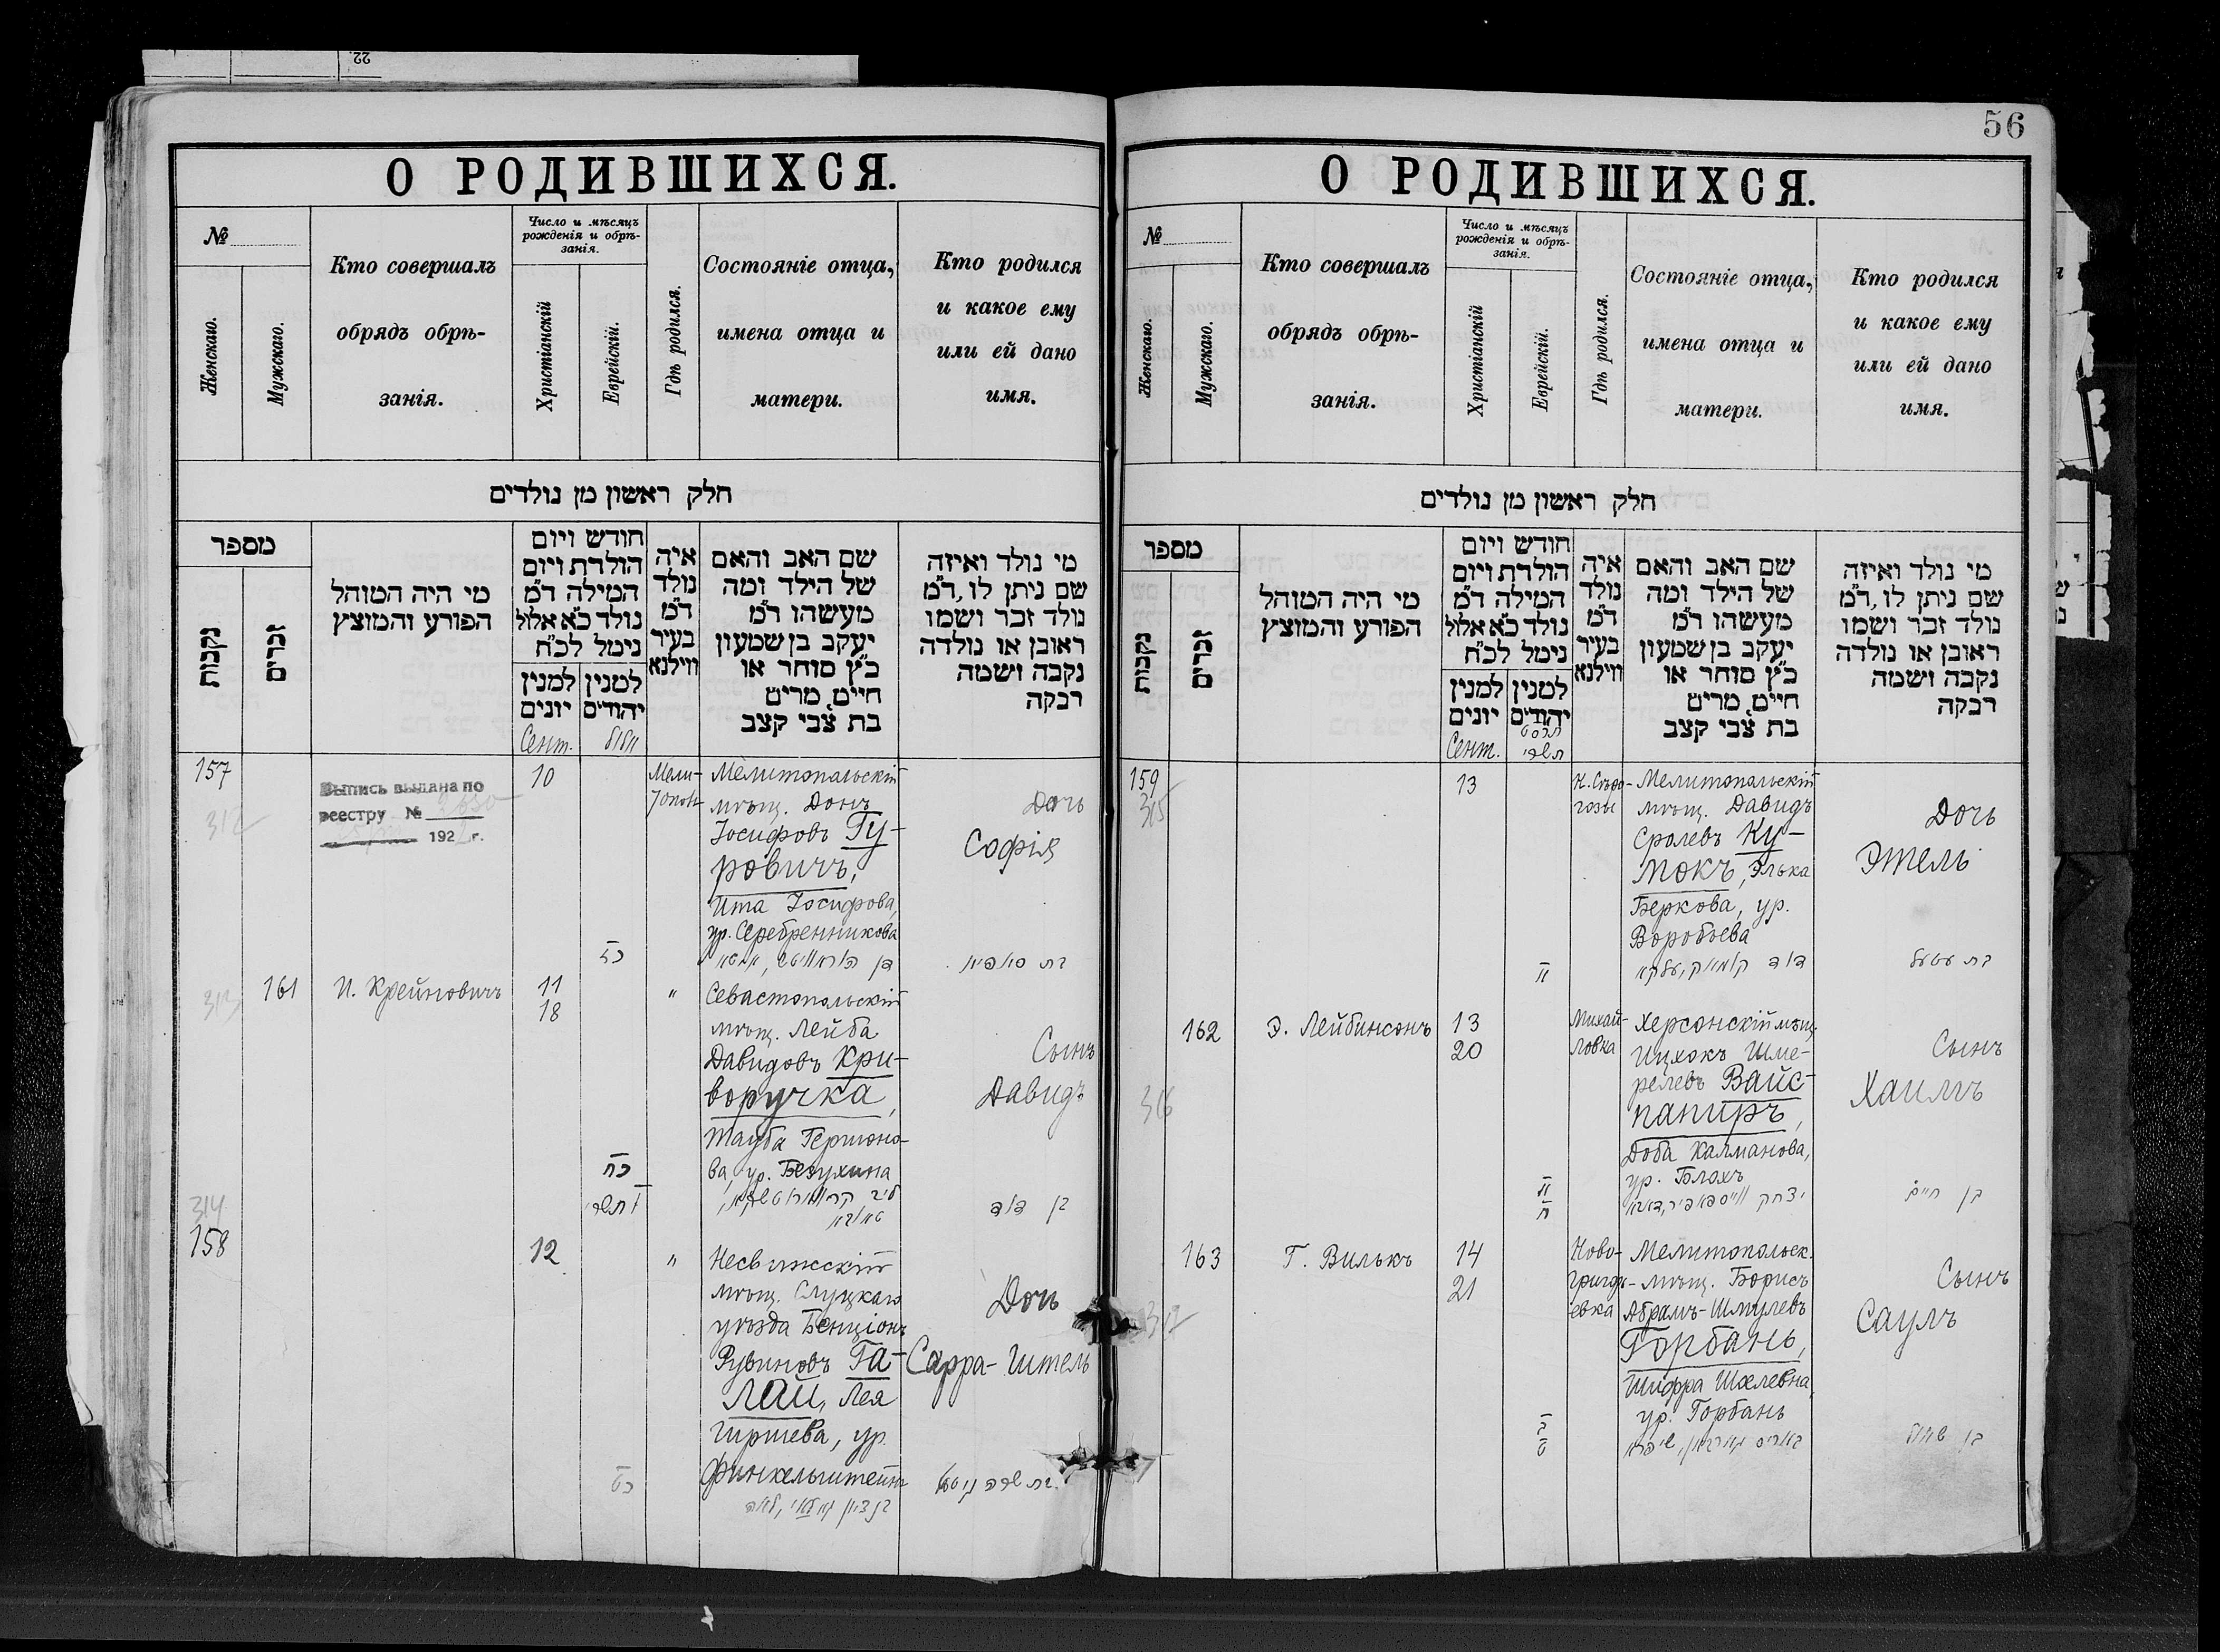 22
О РОДИВШИХСЯ.
№
Женскаго.
Мужскаго.
Кто совершалъ
обрядъ обрѣ-
занія.
Число и мѣсяцъ
рожденія и обрѣ-
занія.
Христіанскій
Еврейскій.
Гдѣ родился.
Состояніе отца,
имена отца и
матери.
Кто родился
и какое ему
или ей дано
имя.
חלק ראשון מן נולדים
מספר
נקבות
זכרים
מי היה המוהל
הפורע והמוצץ
חודש ויום
הולדת ויום
המילה ד״מ
נולד כ״א אלול
נימל לכ״ח
למנין
יונים
למנין
יהודים
איה
נולד
ד״מ
בעיר
ווילנא
שם האב והאם
של הילד ומה
מעשהו ד״מ
יעקב בן שמעון
כ״ץ סוחר או
חיים, מרים
בת צבי קצב
מי נולד ואיזה
שם ניתן לו, ד״מ
נולד זכר ושמו
ראובן או נולדה
נקבה ושמה
רבקה
Сент.
אלול
157
312
Выпись выдана по
реестру №
192 г.
10
Мели-
топол-
Мелитопольскій
мѣщ. Донъ
Іосифовъ Гу-
ровичъ,
Ита Іосифова,
ур. Серебренникова
Дочь
Софія
כז
בת סופיא
313
161
И. Крейновичъ
11
18
"
Севастопольскій
мѣщ. Лейба
Давидовъ Кри-
воручка,
Тауба Гершоно-
ва, ур. Безухина
Сынъ
Давидъ
כח
תשרי
בן דוד
314
158
12
"
Несвижскій
мѣщ. Слуцкаго
уѣзда Бенціонъ
Рувиновъ Га-
лай, Лея
Гиршева, ур.
Финкельштейнъ
Дочь
Сарра-Гитель
כט
בן ציון גאלאי, לאה
בת שרה גיטל
56
О РОДИВШИХСЯ.
№
Женскаго.
Мужскаго.
Кто совершалъ
обрядъ обрѣ-
занія.
Число и мѣсяцъ
рожденія и обрѣ-
занія.
Христіанскій
Еврейскій.
Гдѣ родился.
Состояніе отца,
имена отца и
матери.
Кто родился
и какое ему
или ей дано
имя.
חלק ראשון מן נולדים
מספר
נקבות
זכרים
מי היה המוהל
הפורע והמוצץ
חודש ויום
הולדת ויום
המילה ד״מ
נולד כ״א אלול
נימל לכ״ח
למנין
יונים
למנין
יהודים
איה
נולד
ד״מ
בעיר
ווילנא
שם האב והאם
של הילד ומה
מעשהו ד״מ
יעקב בן שמעון
כ״ץ סוחר או
חיים, מרים
בת צבי קצב
מי נולד ואיזה
שם ניתן לו, ד״מ
נולד זכר ושמו
ראובן או נולדה
נקבה ושמה
רבקה
Сент.
תשרי
159
315
13
Н. Сѣро-
гозы
Мелитопольскій
мѣщ. Давидъ
Сролевъ Ку-
мокъ, Элька
Беркова, ур.
Воробьева
Дочь
Этель
א
דוד קומוק, עלקא
בת עטעל
162
Э. Лейбинсонъ
13
20
Михай-
ловка
Херсонскій мѣщ.
Ицхокъ Шме-
релевъ Вайс-
папиръ,
Доба Калманова,
ур. Блохъ
Сынъ
Хаимъ
316
א
ח
יצחק ווייספאפיר, דאבא
בן חיים
163
Г. Вилькъ
14
21
Ново-
григорь-
евка
Мелитопольск.
мѣщ. Борисъ
Абрамъ-Шмулевъ
Горбань,
Шифра Шлелевна,
ур. Горбань
Сынъ
Саулъ
317
ב
ט
באריס גארבאן, שיפרא
בן שאול